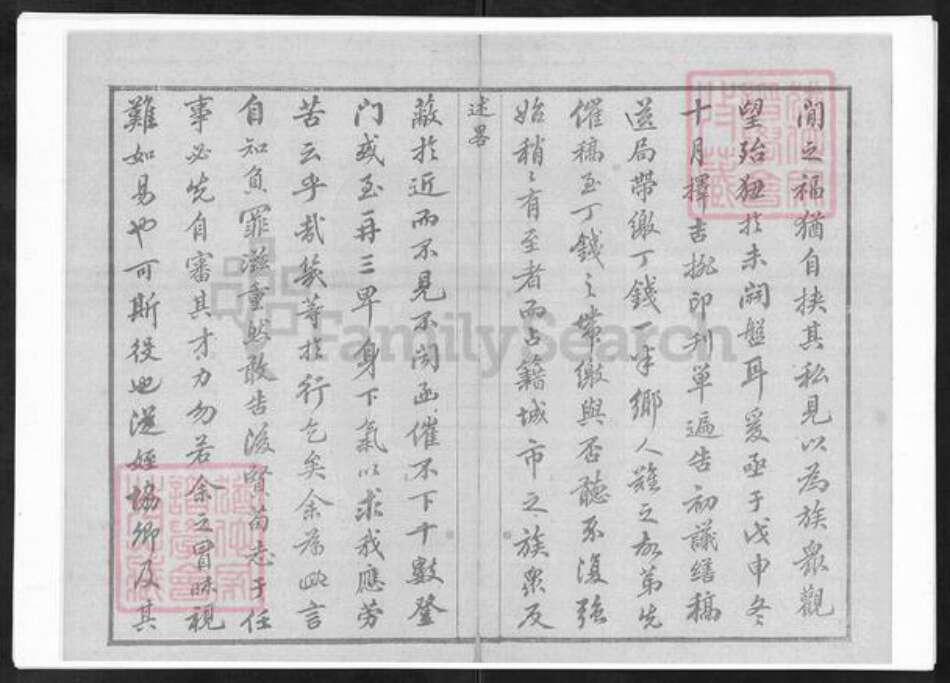 間之福猶自挾其私見以為族眾觀
望殆狃於未開盤耳爰亟于戊申冬
十月擇吉挑印刊單遍告初議繕稿
送局帶繳丁錢一半鄉人難之故第先
催稿至丁錢之帶繳與否聽不復強
始稍〻有至者而占籍城市之族眾反
述畧
蔽於近而不見不聞函催不下十數登
門或至再三卑身下氣以求我應勞
苦云乎哉幾等於行乞矣余為此言
自知負罪滋重然敢告後賢苟志于任
事必先自審其才力勿若余之冒昧視
難如易也可斯役也從姪協卿及其
FamilySearch